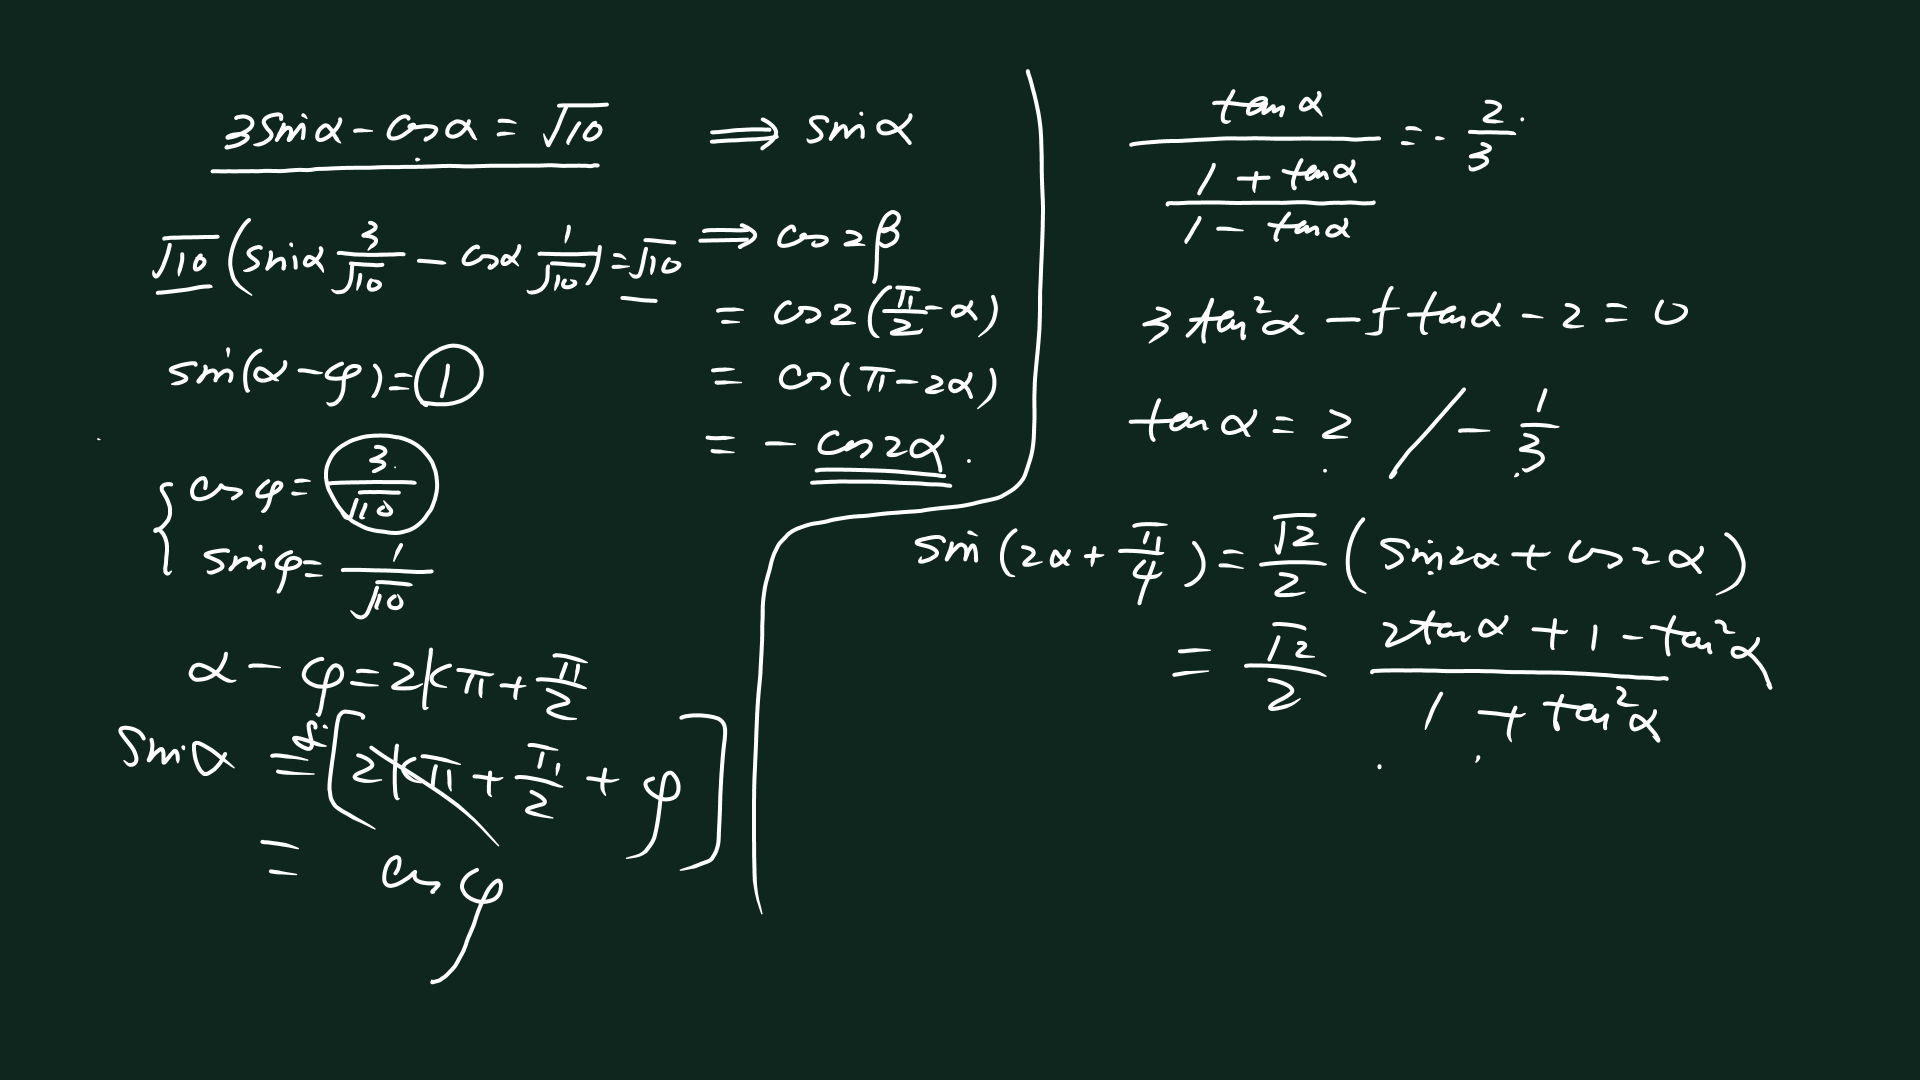 3sinα - cosα = √10 ⟹ sinα
√10 (sinα 3/√10 - cosα 1/√10) = √10 ⟹ cos2β
= cos2(π/2 - α)
sin(α - φ) = 1
= cos(π - 2α)
= - cos2α.
{ cosφ = 3/√10
sinφ = 1/√10
α - φ = 2kπ + π/2
sinα = si[2kπ + π/2 + φ]
= cosφ
tanα / ((1 + tanα)/(1 - tanα)) = - 2/3.
3tan²α - 5tanα - 2 = 0
tanα = 2 / - 1/3
sin(2α + π/4) = √2/2 (sin2α + cos2α)
= √2/2 (2tanα + 1 - tan²α)/(1 + tan²α)